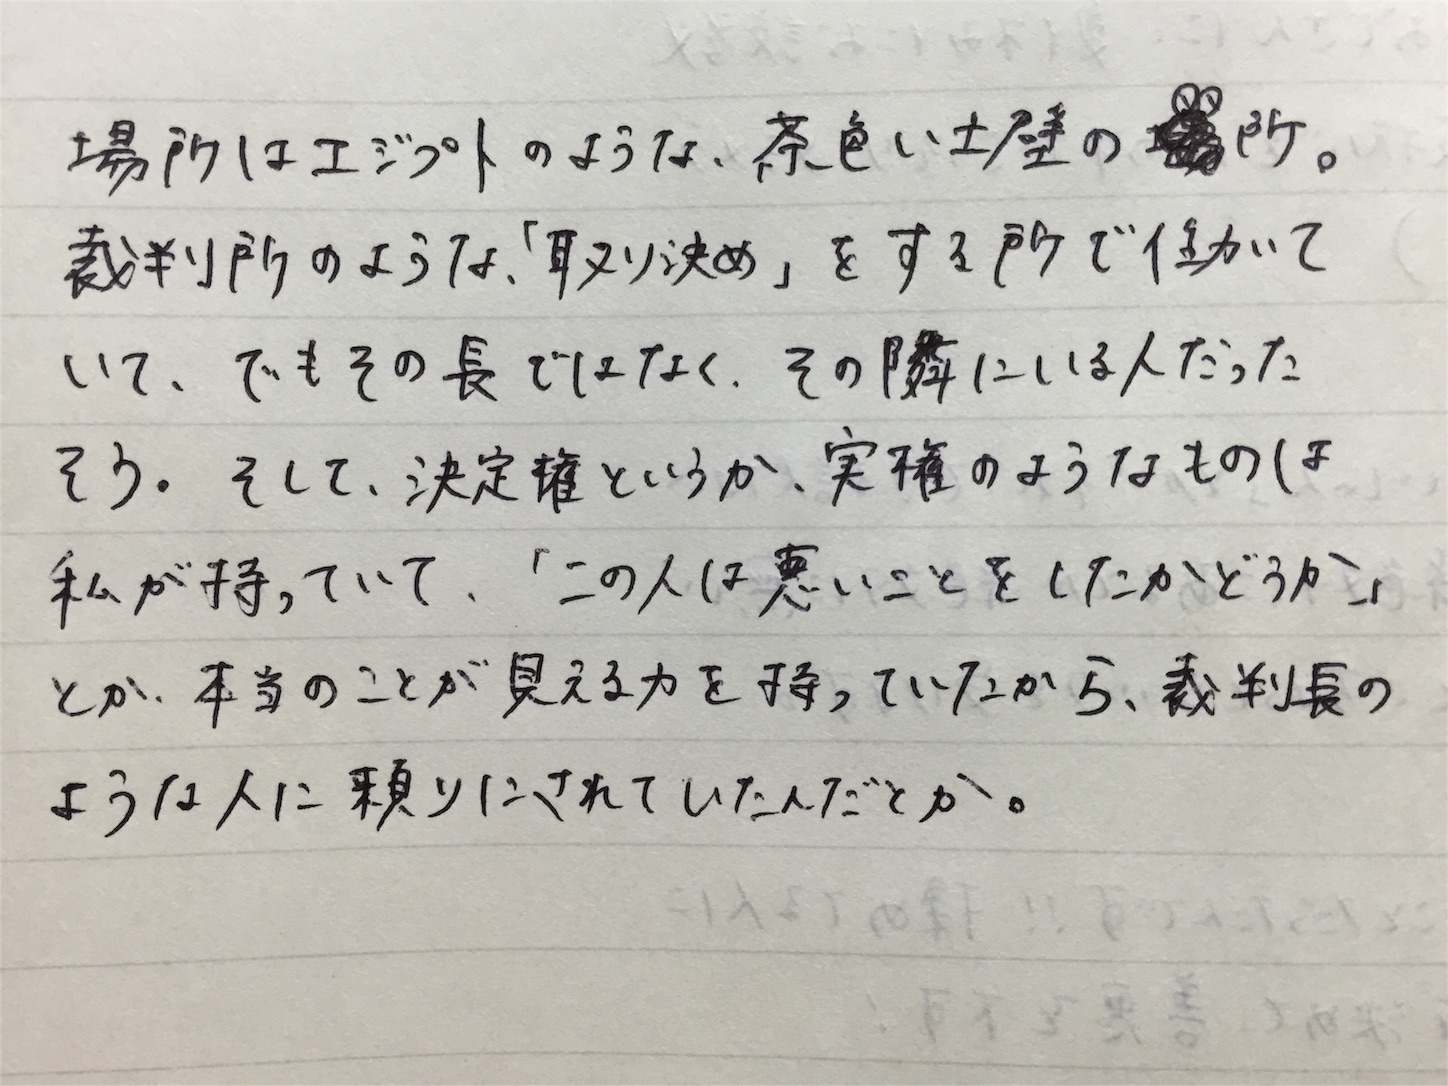 場所はエジプトのような、茶色い土壁の所。
裁判所のような、「取り決め」をする所で働いて
いて、でもその長ではなく、その隣にいる人だった
そう。そして、決定権というか、実権のようなものは
私が持っていて、「この人は悪いことをしたかどうか」
とか、本当のことが見える力を持っていたから、裁判長の
ような人に頼りにされていたんだとか。